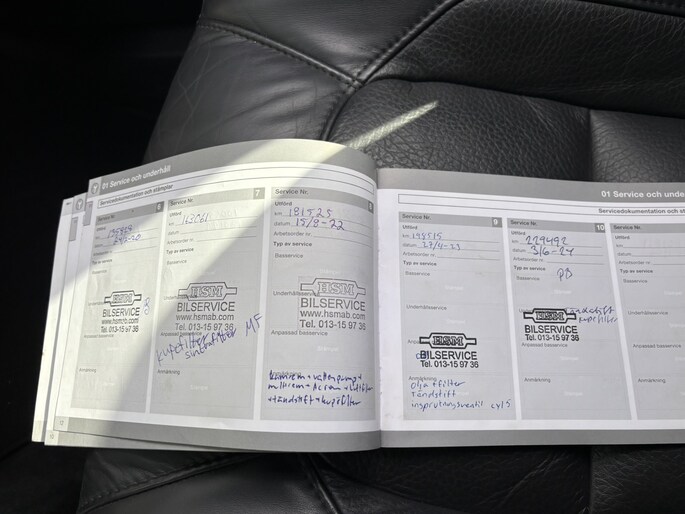 01 Service och underhåll
Servicedokumentation och stämplar
Service Nr. 6
Utförd
km
datum
Arbetsorder nr.
Typ av service
Basservice
HSM
BILSERVICE
www.hsmab.com
Tel. 013-15 97 36
Anmärkning
12
Service Nr. 7
Utförd
km 163061
datum
Arbetsorder nr.
Typ av service
Basservice
HSM
BILSERVICE
www.hsmab.com
Tel. 013-15 97 36
kupefilter MF
Anmärkning
Service Nr. 8
Utförd
km 181525
datum 15/8-22
Arbetsorder nr.
Typ av service
Basservice
Underhållsservice
HSM
BILSERVICE
www.hsmab.com
Tel. 013-15 97 36
Anpassad basservice
Anmärkning
+ vattenpump +
multirem + Acrem + luftfilter
+ tändstift + kupefilter
01 Service och unde
Servicedokumentation och st
Service Nr. 9
Utförd
km 198515
datum 27/4-23
Arbetsorder nr.
Typ av service
Basservice
Underhållsservice
HSM
BILSERVICE
Tel. 013-15 97 36
Anmärkning
oljaffilter
Tändstift
insprutningsventil cyl 5
Service Nr. 10
Utförd
km 229492
datum 3/6-24
Arbetsorder nr.
Typ av service
Basservice
PB
HSM
BILSERVICE
Tel. 013-15 97 36
tändstift
kupefilter
Anpassad basservice
Anmärkning
Service Nr.
Utförd
km
datum
Arbetsorder nr.
Typ av service
Basservice
Anpassad bas
Anmärkning